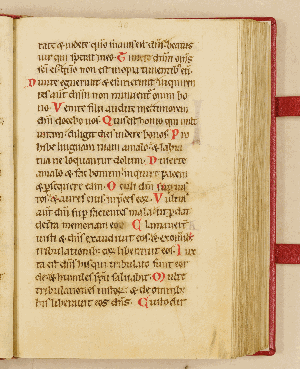 tate & uidere qm̄ suauis est dn̄s beatus
uir qui sperat in eo. Timete dn̄m om̄s
sc̄i ei qm̄ non est inopia timentibus eū.
Diuites eguerunt & esurierunt inquiren
tes aut dn̄m non minuentur omni bo
no. Venite filii audite me timorem
dn̄i docebo uos. Quis est homo qui uult
uitam diligit dies uidere bonos. Pro
hibe linguam tuam a malo & labia
tua ne loquantur dolum. Diuerte
a malo & fac bonum inquire pacem
& persequere eam. Oculi dn̄i sup ius
tos & aures eius in p̄ces eoꝝ. Vultus
aut dn̄i sup facientes mala ut pdat
de terra memoriam eoꝝ. Clamauerūt
iusti & dn̄s exaudiuit eos & ex omnib;
tribulationib; eoꝝ liberauit eos. Iux
ta est dn̄s his qui tribulato sunt cor
de & humiles spū saluabit. Multe
tribulationes iustoꝝ & de omnib;
his liberauit eos dn̄s. Custodit